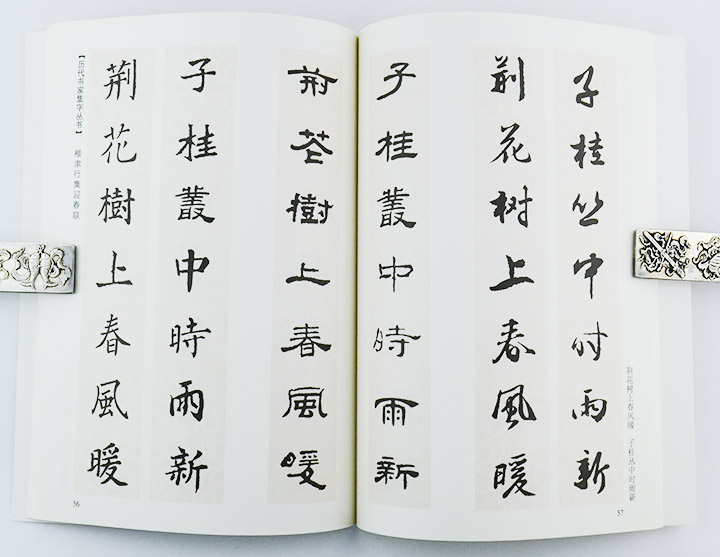 荆花树上春风暖 子桂丛中时雨新
57
子桂丛中时雨新
荆花树上春風暖
子桂叢中時雨新
荆花樹上春風暖
子桂叢中時雨新
荆花樹上春風暖
【历代书家集字丛书】 楷隶行集迎春联
56